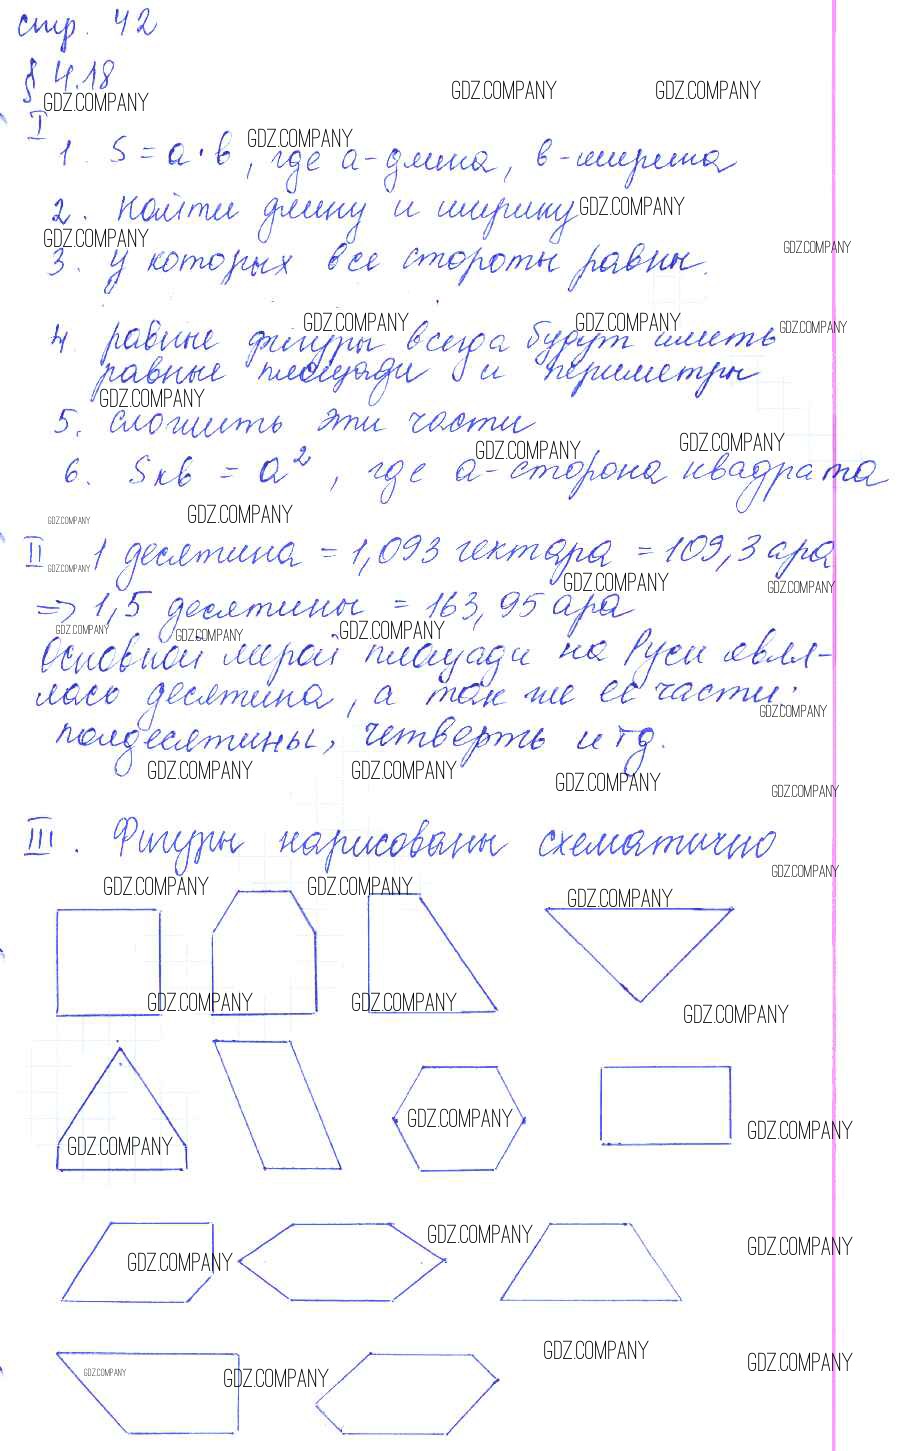 стр. 42
§ 4.18
GDZ.COMPANY GDZ.COMPANY GDZ.COMPANY
I
GDZ.COMPANY
1. S = a · b, где a - длина, b - ширина
2. Найти длину и ширину GDZ.COMPANY
GDZ.COMPANY GDZ.COMPANY
3. У которых все стороты равны.
GDZ.COMPANY GDZ.COMPANY GDZ.COMPANY
4. равные фигуры всегда будут иметь
равные площади и периметры
GDZ.COMPANY
5. сложить эти части
GDZ.COMPANY GDZ.COMPANY
6. Sкв = a², где a - сторона квадрата
GDZ.COMPANY GDZ.COMPANY
II 1 десятина = 1,093 гектара = 109,3 ара
GDZ.COMPANY GDZ.COMPANY GDZ.COMPANY
=> 1,5 десятины = 163,95 ара
GDZ.COMPANY GDZ.COMPANY GDZ.COMPANY
Основной мерой площади на Руси явля-
лась десятина, а так же её части:
GDZ.COMPANY
полдесятины, четверть и тд.
GDZ.COMPANY GDZ.COMPANY GDZ.COMPANY GDZ.COMPANY
III. Фигуры нарисованы схематично
GDZ.COMPANY
GDZ.COMPANY GDZ.COMPANY GDZ.COMPANY
GDZ.COMPANY GDZ.COMPANY GDZ.COMPANY
GDZ.COMPANY GDZ.COMPANY GDZ.COMPANY
GDZ.COMPANY GDZ.COMPANY GDZ.COMPANY
GDZ.COMPANY GDZ.COMPANY GDZ.COMPANY GDZ.COMPANY